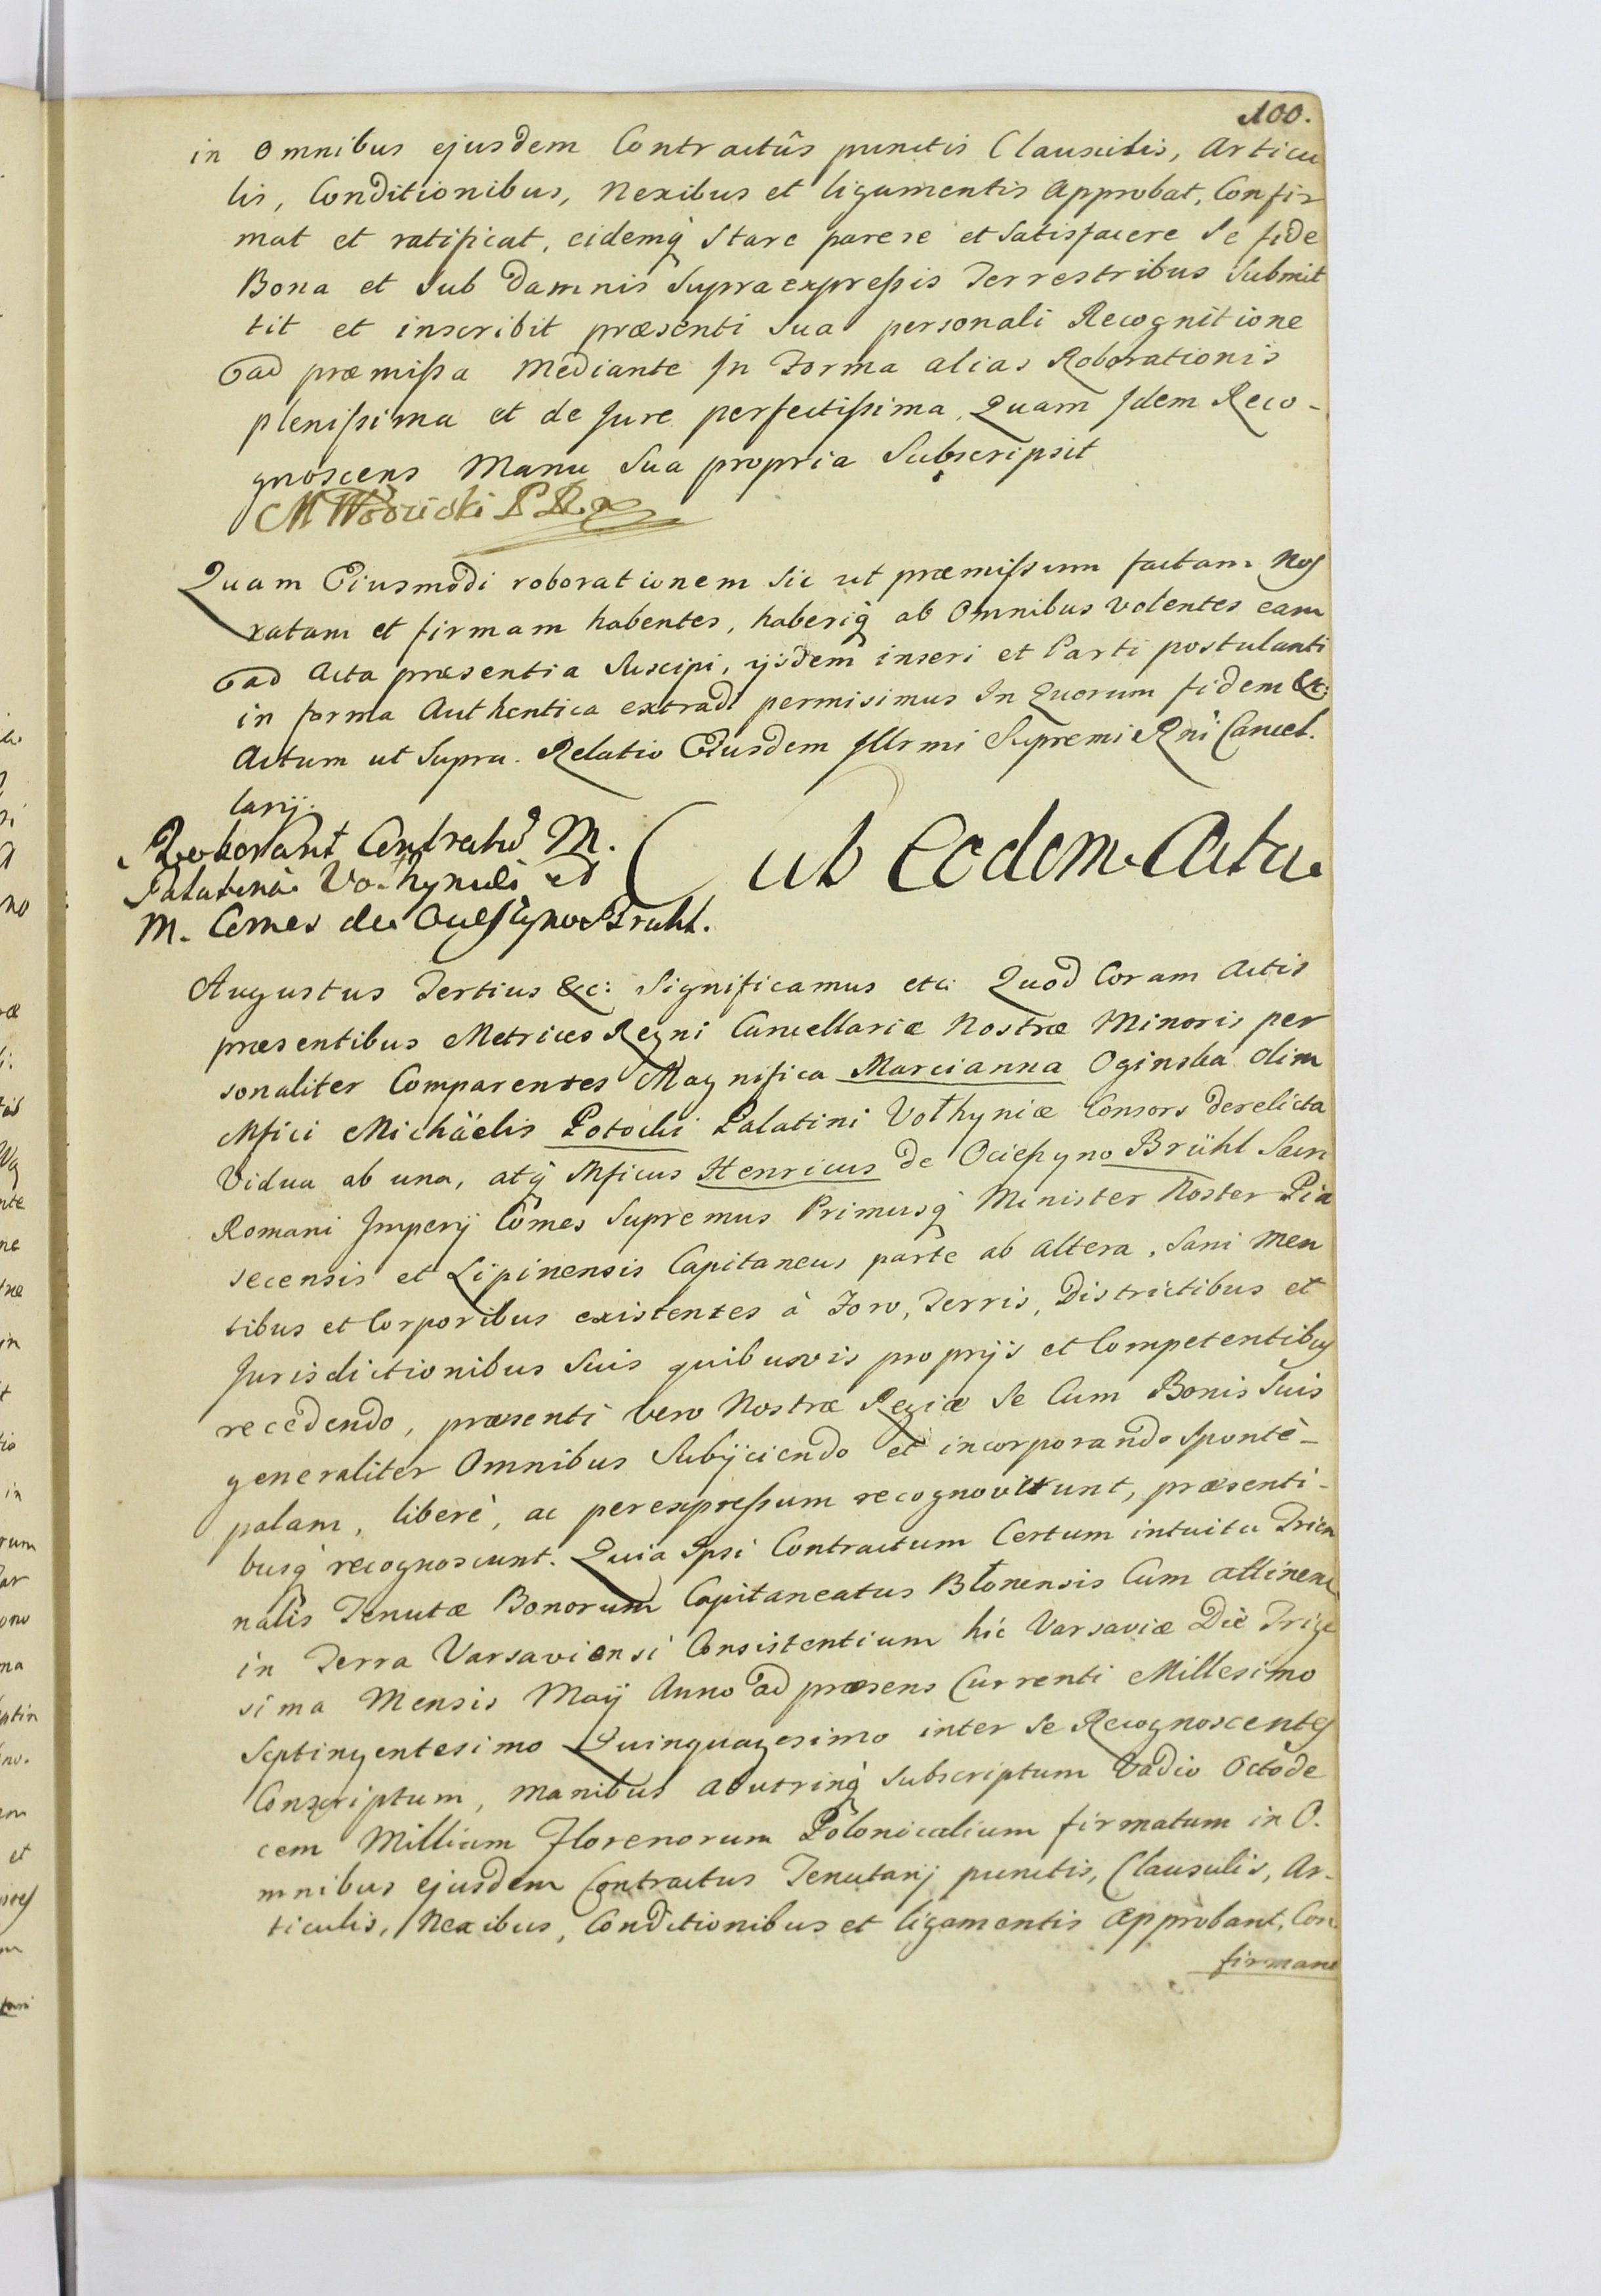 100.
in omnibus ejusdem Contractûs punctis Clausulis, Articu
lis, Conditionibus, Nexibus et ligamentis Approbat, Confir
mat et ratificat, eidemq́ Stare parere et Satisfacere Se fide
Bona et Sub Damnis Supraexpressis Terrestribus Submit
tit et inscribit præsenti Sua personali Recognitione
ad præmissa Mediante In Forma alias Roborationis
plenissima et de Jure perfectissima, Quam Idem Reco-
gnoscens Manu Sua propria Subscripsit
M Wodzicki
Quam Eiusmodi roborationem Sic ut præmissum factam Nos
ratam et firmam habentes, haberiq́ ab Omnibus Volentes eam
ad Acta præsentia Suscipi, ijsdem inseri et Parti postulanti
in forma Authentica extradi permisimus In Quorum fidem &c:
Actum ut Supra. Relatio Eiusdem Illrmi Supremi Rni Cancel.
larij.
Roborant Contractũ M.
Palatina Vołhyniæ et
M. Comes de Ocieszyno Bruhl.
Sub Eodem Actu
Augustus Tertius &c: Significamus etc: Quod Coram Actis
præsentibus Metrices Regni Cancellariæ Nostræ Minoris per
sonaliter Comparentes Magnifica Marcianna Oginska olim
Mfici Michäelis Potocki Palatini Vołhyniæ Consors derelicta
Vidua ab una, atq́ Mficus Henricus de Ocieszyno Brühl Sacri
Romani Imperij Comes Supremus Primusq́ Minister Noster Pia
secensis et Lipinensis Capitaneus parte ab altera, Sani Men
tibus et Corporibus existentes à Foro, Terris, Districtibus et
Jurisdictionibus Suis quibusvis proprijs et Competentibus
recedendo, præsenti vero Nostræ Regiæ Se Cum Bonis Suis
generaliter Omnibus Subijciendo et incorporando Spontè-
palam, liberè, ac perexpressum recognoverunt, præsenti-
busq́ recognoscunt. Quia Ipsi Contractum Certum intuitu Trien
nalis Tenutæ Bonorum Capitaneatus Błonensis Cum attinen:
in Terra Varsaviensi Consistentium hic Varsaviæ Die Trige
sima Mensis Maij Anno ad præsens Currenti Millesimo
Septingentesimo Quinquagesimo inter Se Recognoscentes
Conscriptum, Manibus adutrinq́ Subscriptum Vadio Octode
cem Millium Florenorum Polonicalium firmatum in O.
mnibus ejusdem Contractus Tenutarij punctis, Clausulis, Ar-
ticulis, Nexibus, Conditionibus et ligamentis Approbant, Con
firmant